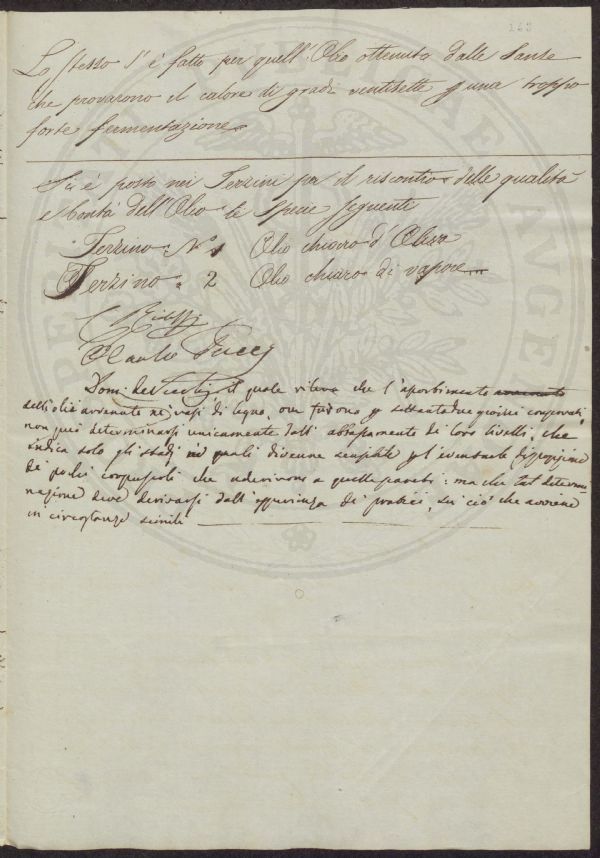 163
Lo stesso s'è fatto per quell'Olio ottenuto dalle Sanse
che provarono il calore di gradi ventisette p una troppo
forte fermentazione
Si è posto nei Terzini per il riscontro delle qualità
e bontà dell'Olio le Specie seguenti
Terzino N° 1 Olio chiaro d'Oliva
Terzino " 2 Olio chiaro di vapore
Paolo Pucci
Dom: il quale rileva che l'assorbimento
dell'olio avvenuto ne' vasi di legno, ove furono p settantadue giorni conservati
non può determinarsi unicamente dall'abbassamento di loro livelli, che
indica solo gli stadj ne' quali divenne sensibile
de' pochi corpuscoli che aderivano a quelle pareti: ma che tal determi-
nazione deve derivarsi dall'esperienza di pratici, su ciò che avviene
in circostanze simili